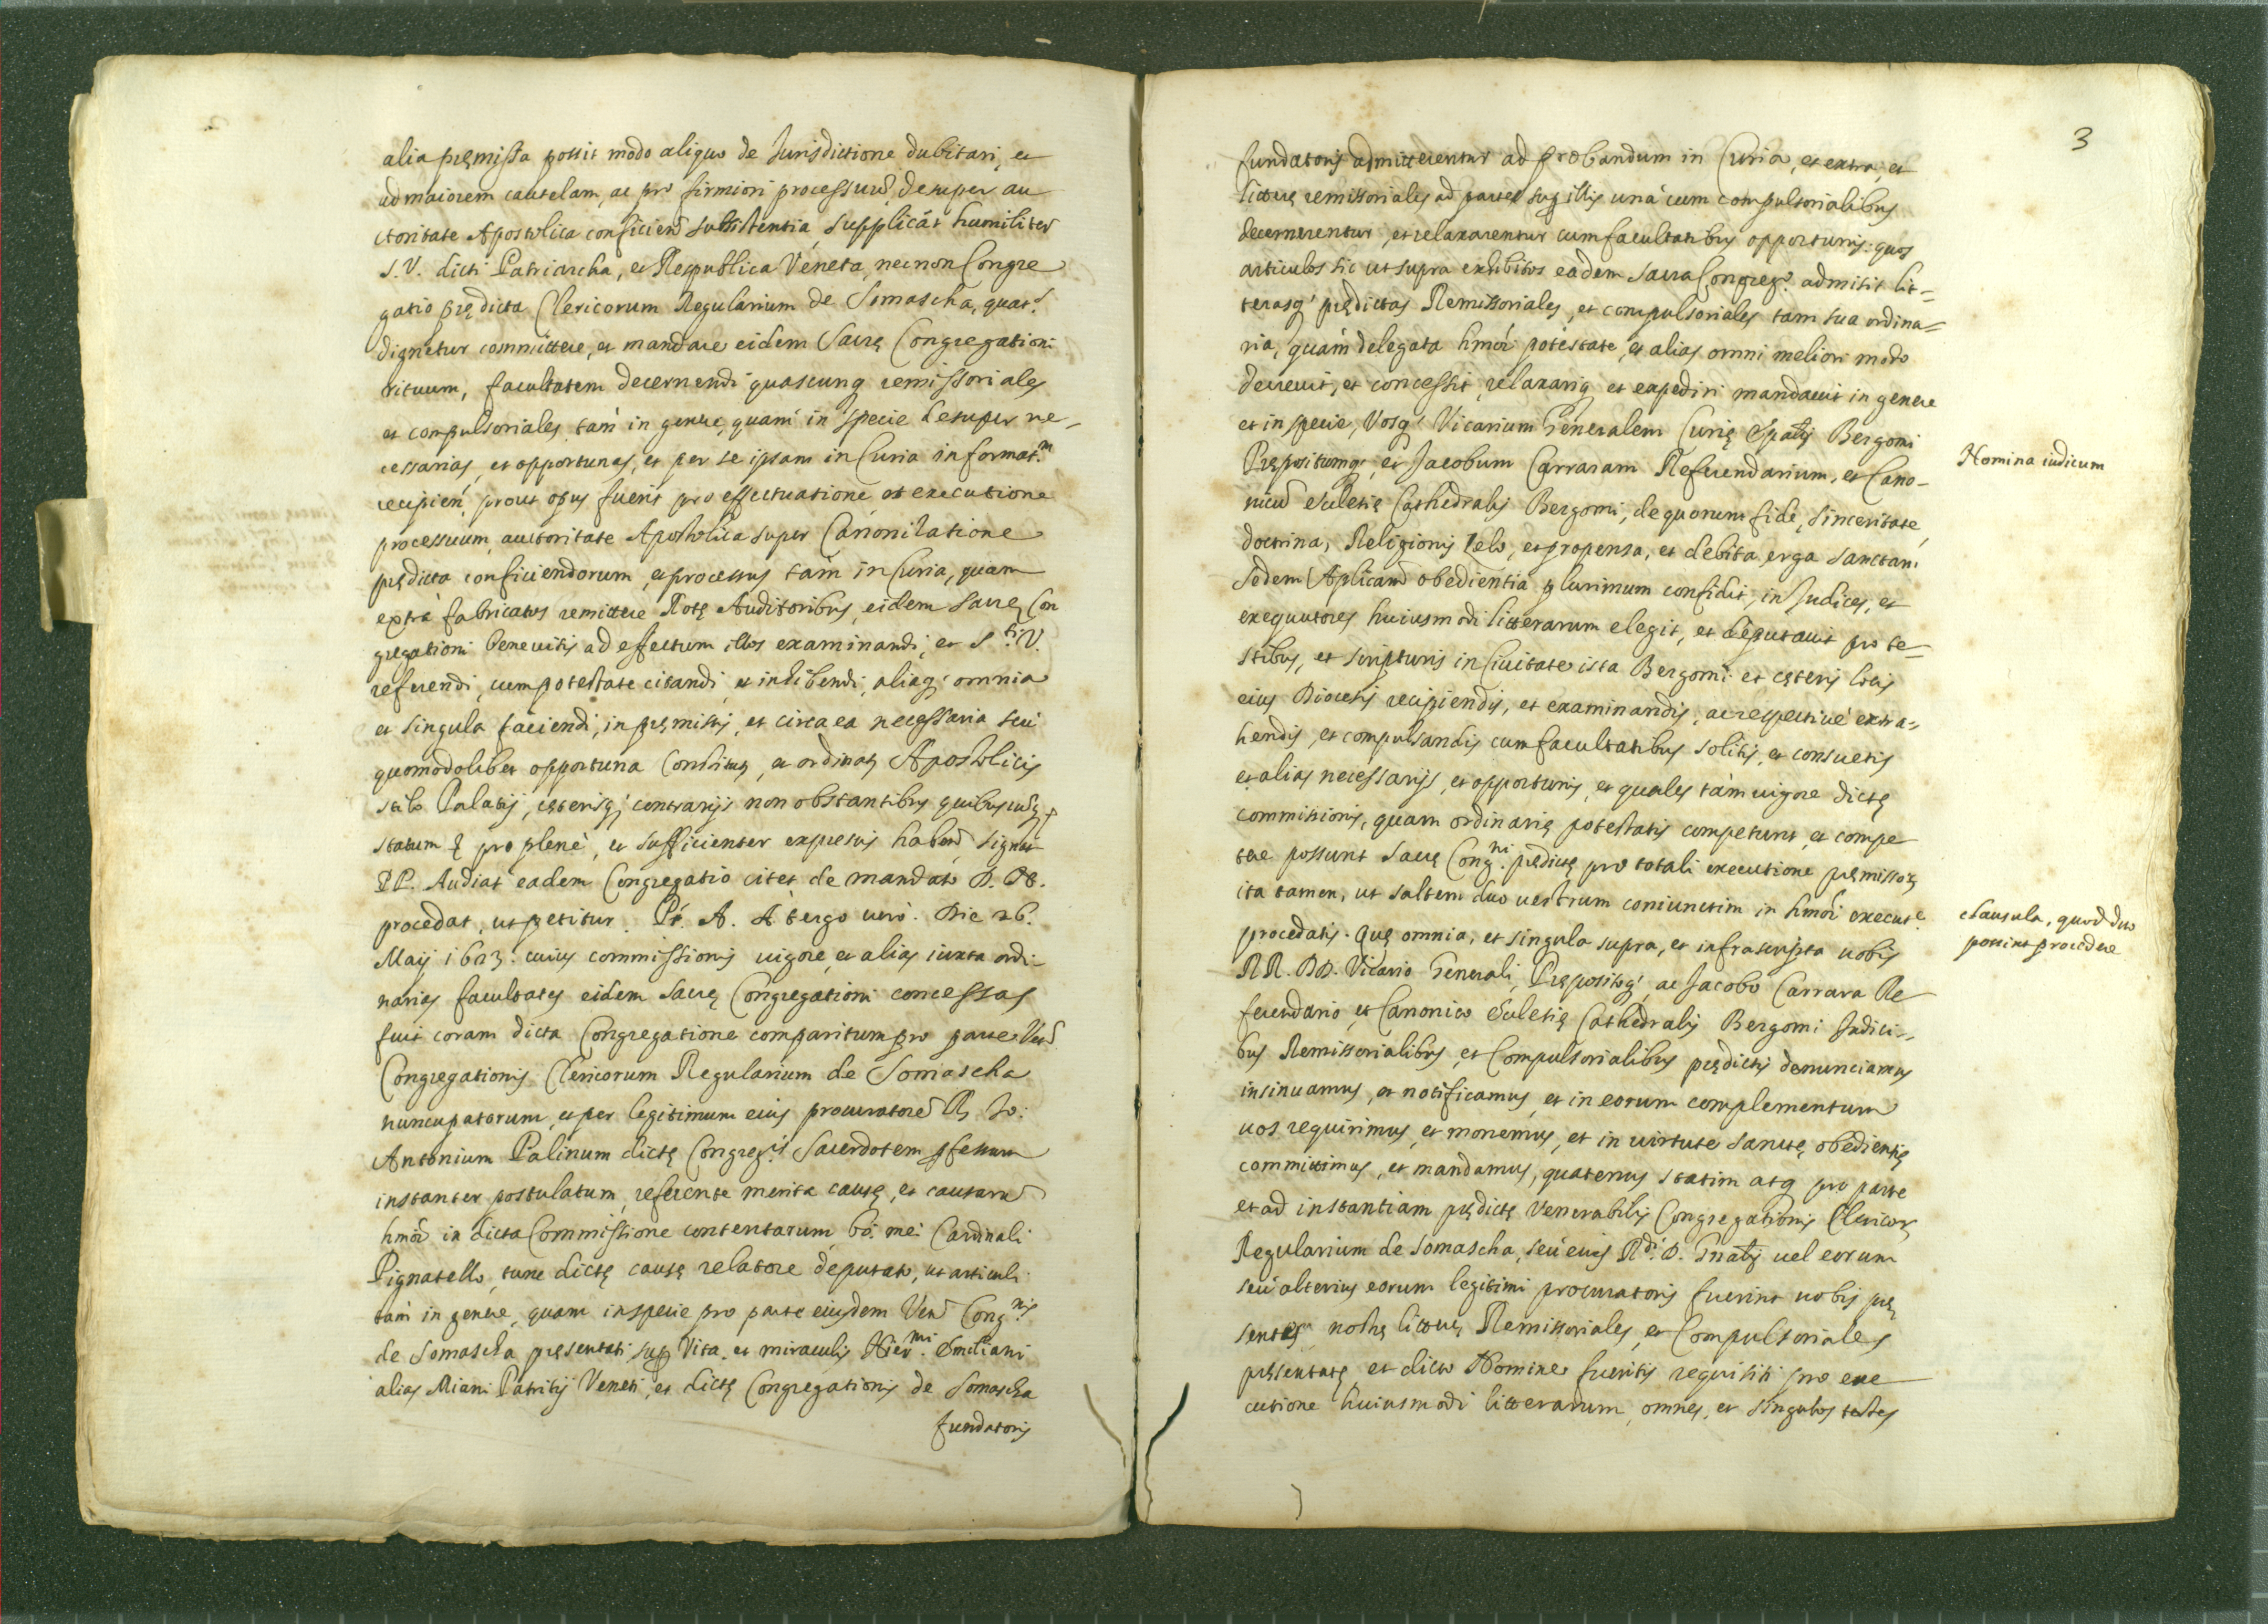 alia pręmissa possit modo aliquo de Jurisdictione dubitari, et
ad maiorem cautelam, ac pro firmiori processuũ desuper au
ctoritate Apostolica conficien̄d subsistentia, supplicãt humiliter
S. V. dicti Patriarcha, et Respublica Veneta, nec non Congre
gatio prędicta Clericorum Regularium de Somascha, quat.s
dignetur committere, et mandare eidem Sacrę Congregationi
rituum, facultatem decernendi quascunq remissoriales
et compulsoriales tam in genere, quam in specie desuper ne-
cessarias, et opportunas, et per se ipsam in Curia informat.m
recipien̄, prout opus fuerit pro effectuatione, et executione
processuum auctoritate Apostolica super Canonizatione
prędicta conficiendorum, et processus tam in Curia, quam
extra fabricatos remittere Rotę Auditoribus, eidem Sacrę Con
gregationi benevisis ad effectum illos examinandi, et S.ti V.
referendi, cum potestate citandi, et inhibendi, aliaq; omnia
et singula faciendi, in pręmissis, et circa ea necessaria seu
quomodolibet opportuna Constitus, et ordinat Apostolicis
stilo Palatij, cęterisq; contrarijs non obstantibus quibuscũq
statum pro plenè, et sufficienter expressis haben̄ signat
PP. Audiat eadem Congregatio citet de mandato D. PP.
procedat, ut petitur. Pr. A. A tergo uerò. Die 26.
Maij 1623. cuius commissionis uigore, et alias iuxta ordi-
narias facultates eidem Sacrę Congregationi concessas
fuit coram dicta Congregatione comparitum pro parte Ven.
Congregationis Clericorum Regularium de Somascha
nuncupatorum, et per legitimum eius procuratorẽ R. Jo:
Antonium Palinum dictę Congreg.is Sacerdotem pfessum
instanter postulatum, referente merita causę, et causarũ
hmõi in dicta Commissione contentarum bo: me: Cardinali
Pignatello, tunc dictę causę relatore deputato, ut articuli
tam in genere, quam in specie pro parte eiusdem Ven. Cong.nis
de Somascha pręsentati sup Vita, et miraculis Hier.mi Emiliani
alias Miani Patritij Veneti, et dictę Congregationis de Somascha
fundatoris
3
fundatoris admitterentur ad probandum in Curia, et extra, et
litterę remissoriales ad partes sup illis unà cum compulsorialibus
decernerentur, et relaxarentur cum facultatibus opportunis: quos
articulos sic ut supra exhibitos eadem Sacra Congreg.o admisit lit=
terasq; prędictas Remissoriales, et compulsoriales tam sua ordina=
ria, quàm delegata hmõi potestate, et alias omni meliori modo
decreuit, et concessit, relaxariq et expediri mandauit in genere
et in specie, Vosq; Vicarium Generalem Curię Epālis Bergomi
Prępositumq; et Jacobum Carraram Referendarium, et Cano-
nicũ Ecclesię Cathedralis Bergomi, de quorum fide, sinceritate
doctrina, Religionis zelo, et propensa, et debita erga sanctam
Sedem Aplicam̄ obedientia plurimum confidit, in Judices, et
exequutores huiusmodi litterarum elegit, et deputauit pro te=
stibus, et scripturis in Ciuitate ista Bergomi et cęteris locis
eius Diocesis recipiendis, et examinandis, ac respectiuè extra=
hendis, et compulsandis cum facultatibus solitis, et consuetis
et alias necessarijs, et opportunis, et quales tàm uigore dictę
commissionis, quam ordinarię potestatis competunt, et compe
tere possunt Sacrę Cong.ni prędictę pro totali executione pręmissoꝝ
ita tamen, ut saltem duo uestrum coniunctim in hmõi execut.e
procedatis. Quę omnia, et singula supra, et infrascripta uobis
RR. DD. Vicario Generali, Prępositoq; ac Jacobo Carrara Re
ferendario et Canonico Ecclesię Cathedralis Bergomi Judici=
bus Remissorialibus, et Compulsorialibus prędictis denunciamus
insinuamus, et notificamus, et in eorum complementum
uos requirimus, et monemus, et in uirtute sanctę obedientię
committimus, et mandamus, quatenus statim atq pro parte
et ad instantiam prędictę Venerabilis Congregationis Clericoꝝ
Regularium de Somascha, seu eius R.di D. Gnālis uel eorum
seu alterius eorum legitimi procuratoris fuerint uobis prę
sentes nostrę litterę Remissoriales, et Compulsoriales
pręsentatę, et dicto Nomine fueritis requisiti pro exe
cutione huiusmodi litterarum, omnes, et singulos testes
Nomina iudicum
Clausula, quod duo
possint procedere